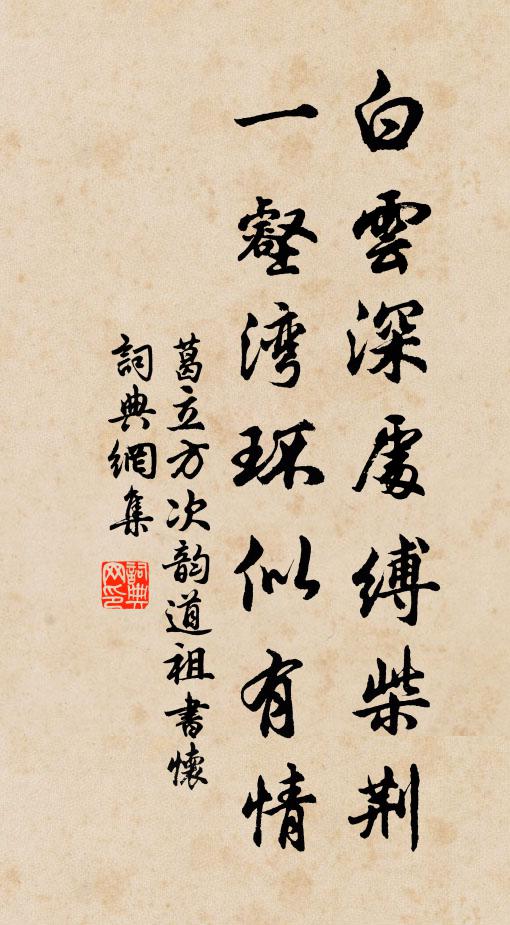 白雲深處縛柴荊
一壑湾环似有情
葛立方次韵道祖書懷
詞典網集
詞典网印